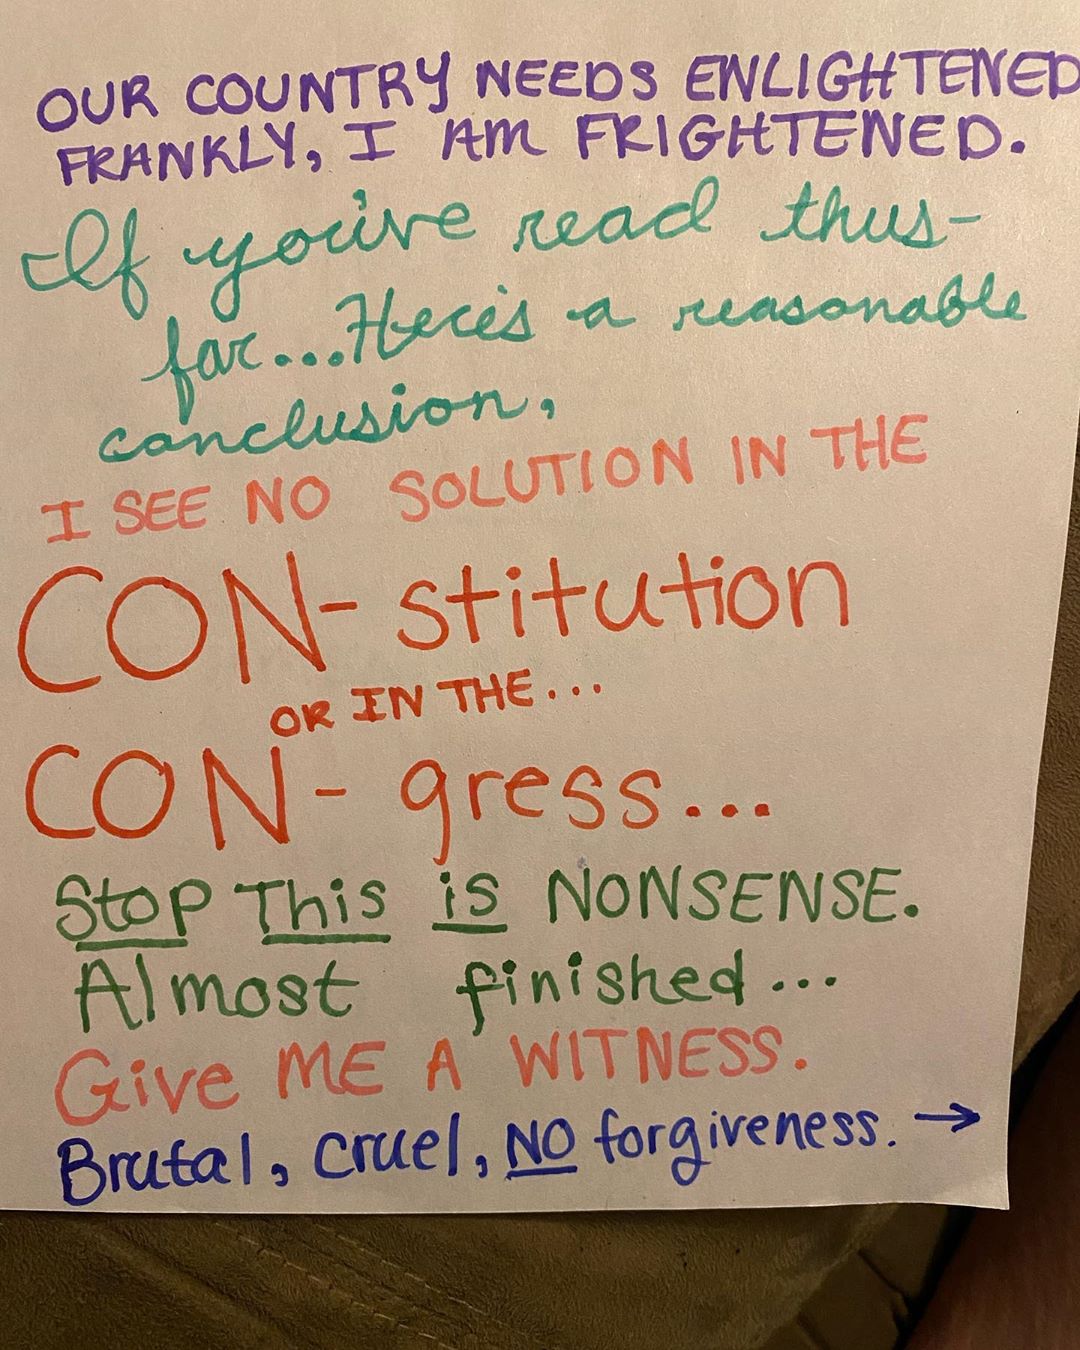 OUR COUNTRY NEEDS ENLIGHTENED
FRANKLY, I AM FRIGHTENED.
If you've read thus-
far... Here's a reasonable
conclusion,
I SEE NO SOLUTION IN THE
CON- stitution
OR IN THE...
CON- gress...
Stop This is NONSENSE.
Almost finished...
Give ME A WITNESS.
Brutal, cruel, NO forgiveness. →